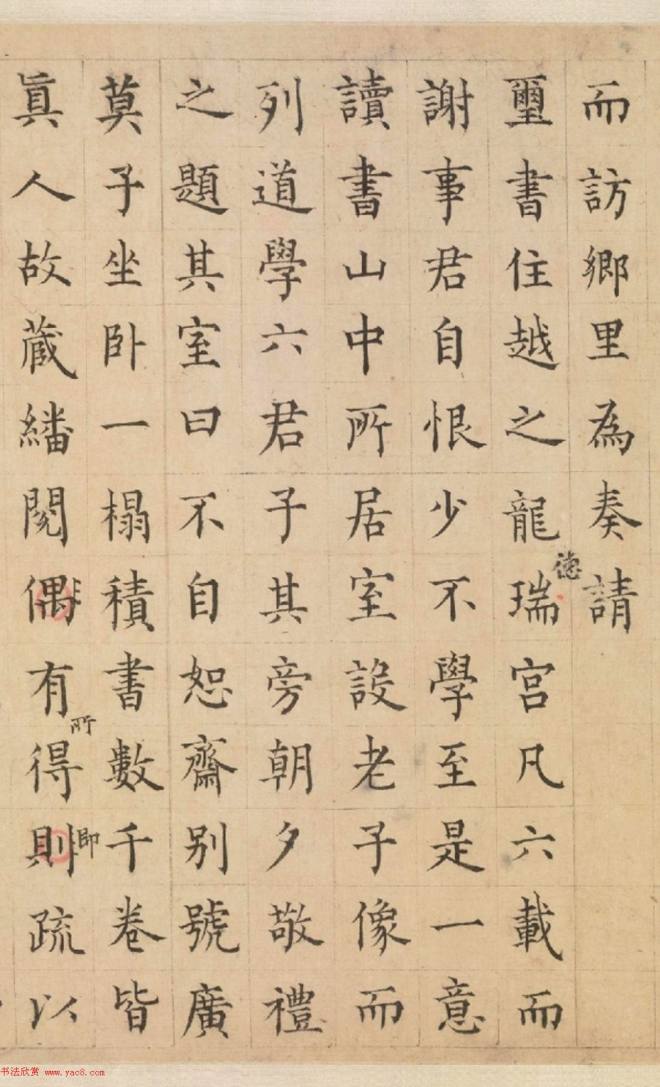 而訪鄉里為奏請
德
璽書住越之龍瑞宮凡六載而
謝事君自恨少不學至是一意
讀書山中所居室設老子像而
列道學六君子其旁朝夕敬禮
之題其室曰不自恕齋別號廣
莫子坐卧一榻積書數千卷皆
所
即
眞人故藏繙閱偶有得則疏以
书法欣赏 www.yac8.com